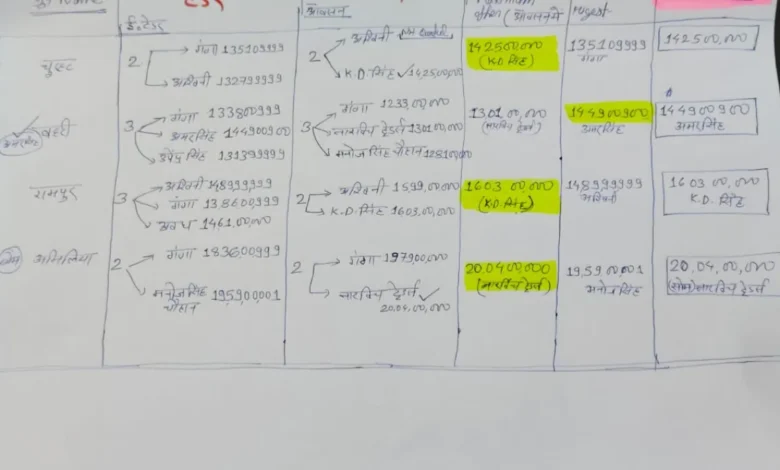 ई-टेंडर
ऑक्सन
offer (ऑक्सनमें
चुरहट
2
गंगा 135109999
अश्विनी 132799999
2
अश्विनी
K.D. सिंह ✓ 142500,000
142500,000
(K.D सिंह)
135109999
गंगा
142500,000
3
गंगा 133800999
अमरसिंह 144900900
उपेन्द्र सिंह 131399999
3
गंगा 1233,00,000
मनोज सिंह चौहान 12810,000
1301 00,000
144900900
अमरसिंह
144900900
अमरसिंह
रामपुर
3
अश्विनी 148999999
गंगा 138600999
अवध 1461,00,000
2
अश्विनी 1599,00,000
K.D. सिंह 1603,00,000
1603 00,000
(K.D. सिंह)
148999999
अश्विनी
1603 00,000
K.D. सिंह
अमिलिया
2
गंगा 1836,00999
मनोज सिंह
चौहान 195900001
2
गंगा 197900,000
20,04,00,000
20.0400,000
19,5900,001
मनोजसिंह
20.04,00,000